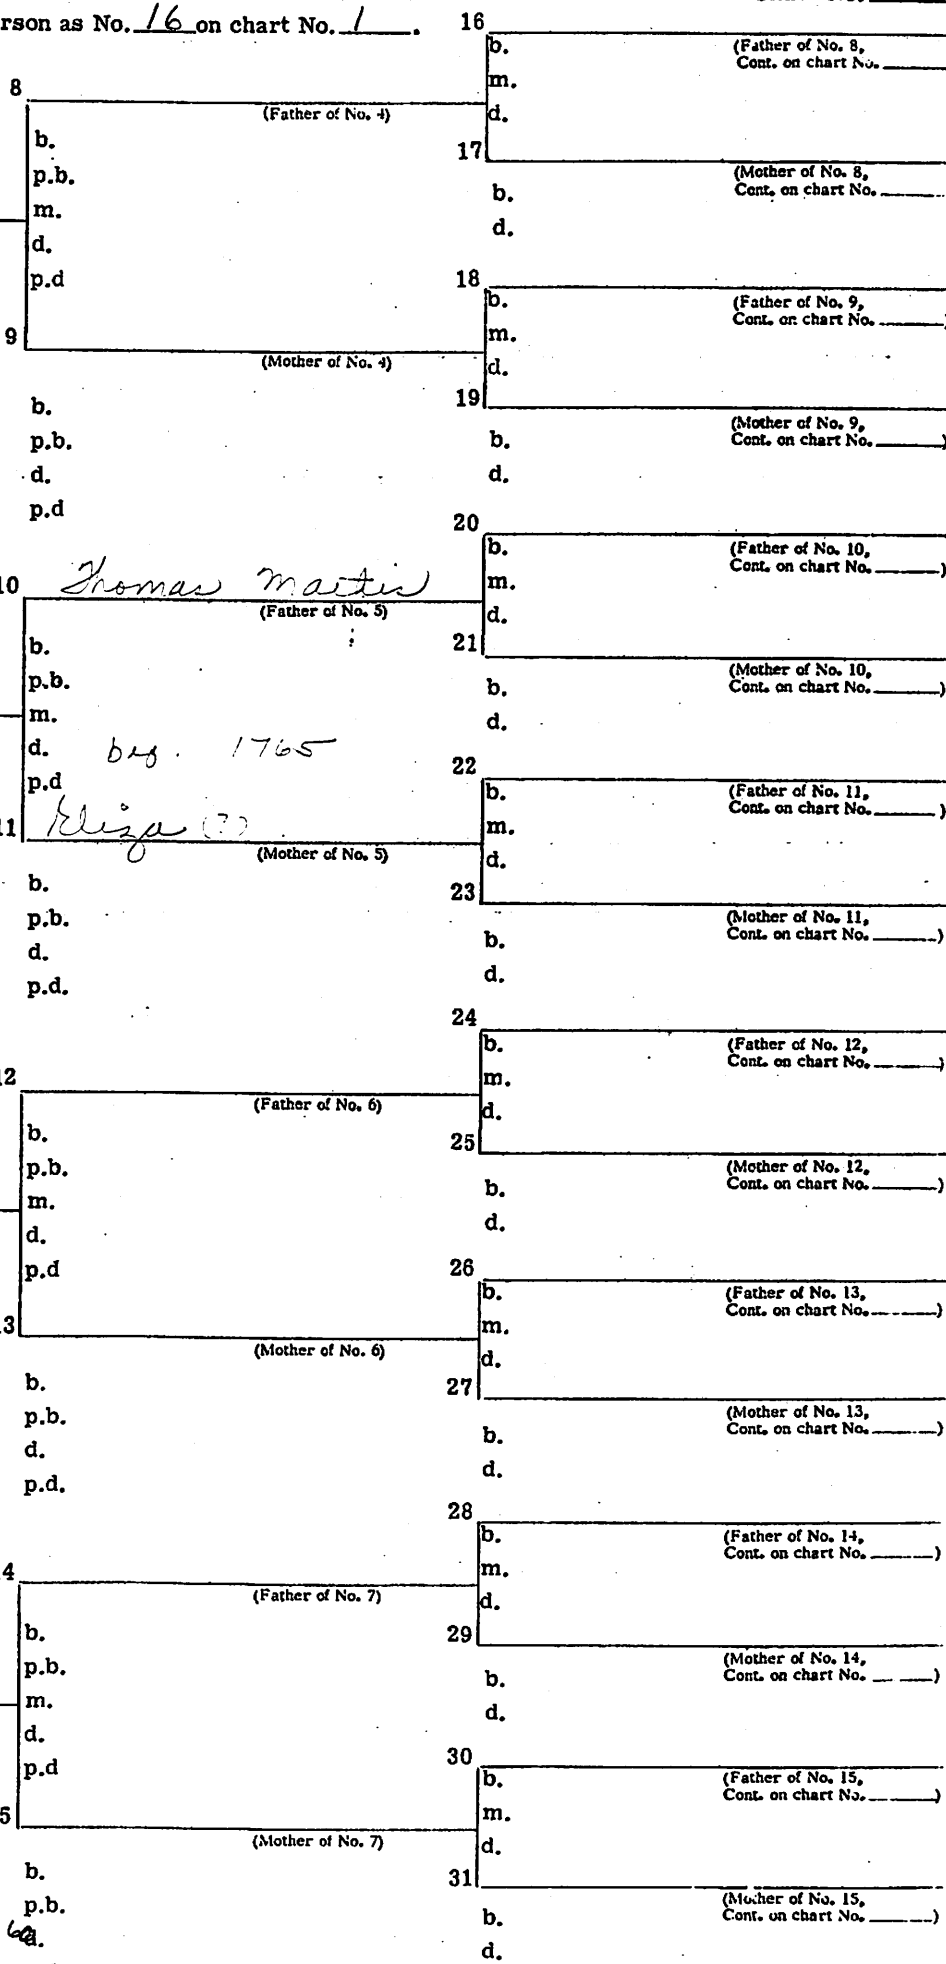 rson as No. 16 on chart No. 1.
8
(Father of No. 4)
b.
p.b.
m.
d.
p.d
9
(Mother of No. 4)
b.
p.b.
d.
p.d
10 Thomas Martin
(Father of No. 5)
b.
p.b.
m.
d. bef. 1765
p.d
11 Eliza (?)
(Mother of No. 5)
b.
p.b.
d.
p.d.
12
(Father of No. 6)
b.
p.b.
m.
d.
p.d
13
(Mother of No. 6)
b.
p.b.
d.
p.d.
14
(Father of No. 7)
b.
p.b.
m.
d.
p.d
15
(Mother of No. 7)
b.
p.b.
d.
16
b.
(Father of No. 8,
Cont. on chart No.
m.
d.
17
(Mother of No. 8,
Cont. on chart No.
b.
d.
18
b.
(Father of No. 9,
Cont. on chart No. )
m.
d.
19
(Mother of No. 9,
Cont. on chart No. )
b.
d.
20
b.
(Father of No. 10,
Cont. on chart No. )
m.
d.
21
(Mother of No. 10,
Cont. on chart No. )
b.
d.
22
b.
(Father of No. 11,
Cont. on chart No. )
m.
d.
23
(Mother of No. 11,
Cont. on chart No. )
b.
d.
24
b.
(Father of No. 12,
Cont. on chart No. )
m.
d.
25
(Mother of No. 12,
Cont. on chart No. )
b.
d.
26
b.
(Father of No. 13,
Cont. on chart No. )
m.
d.
27
(Mother of No. 13,
Cont. on chart No. )
b.
d.
28
b.
(Father of No. 14,
Cont. on chart No. )
m.
d.
29
(Mother of No. 14,
Cont. on chart No. )
b.
d.
30
b.
(Father of No. 15,
Cont. on chart No. )
m.
d.
31
(Mother of No. 15,
Cont. on chart No. )
b.
d.